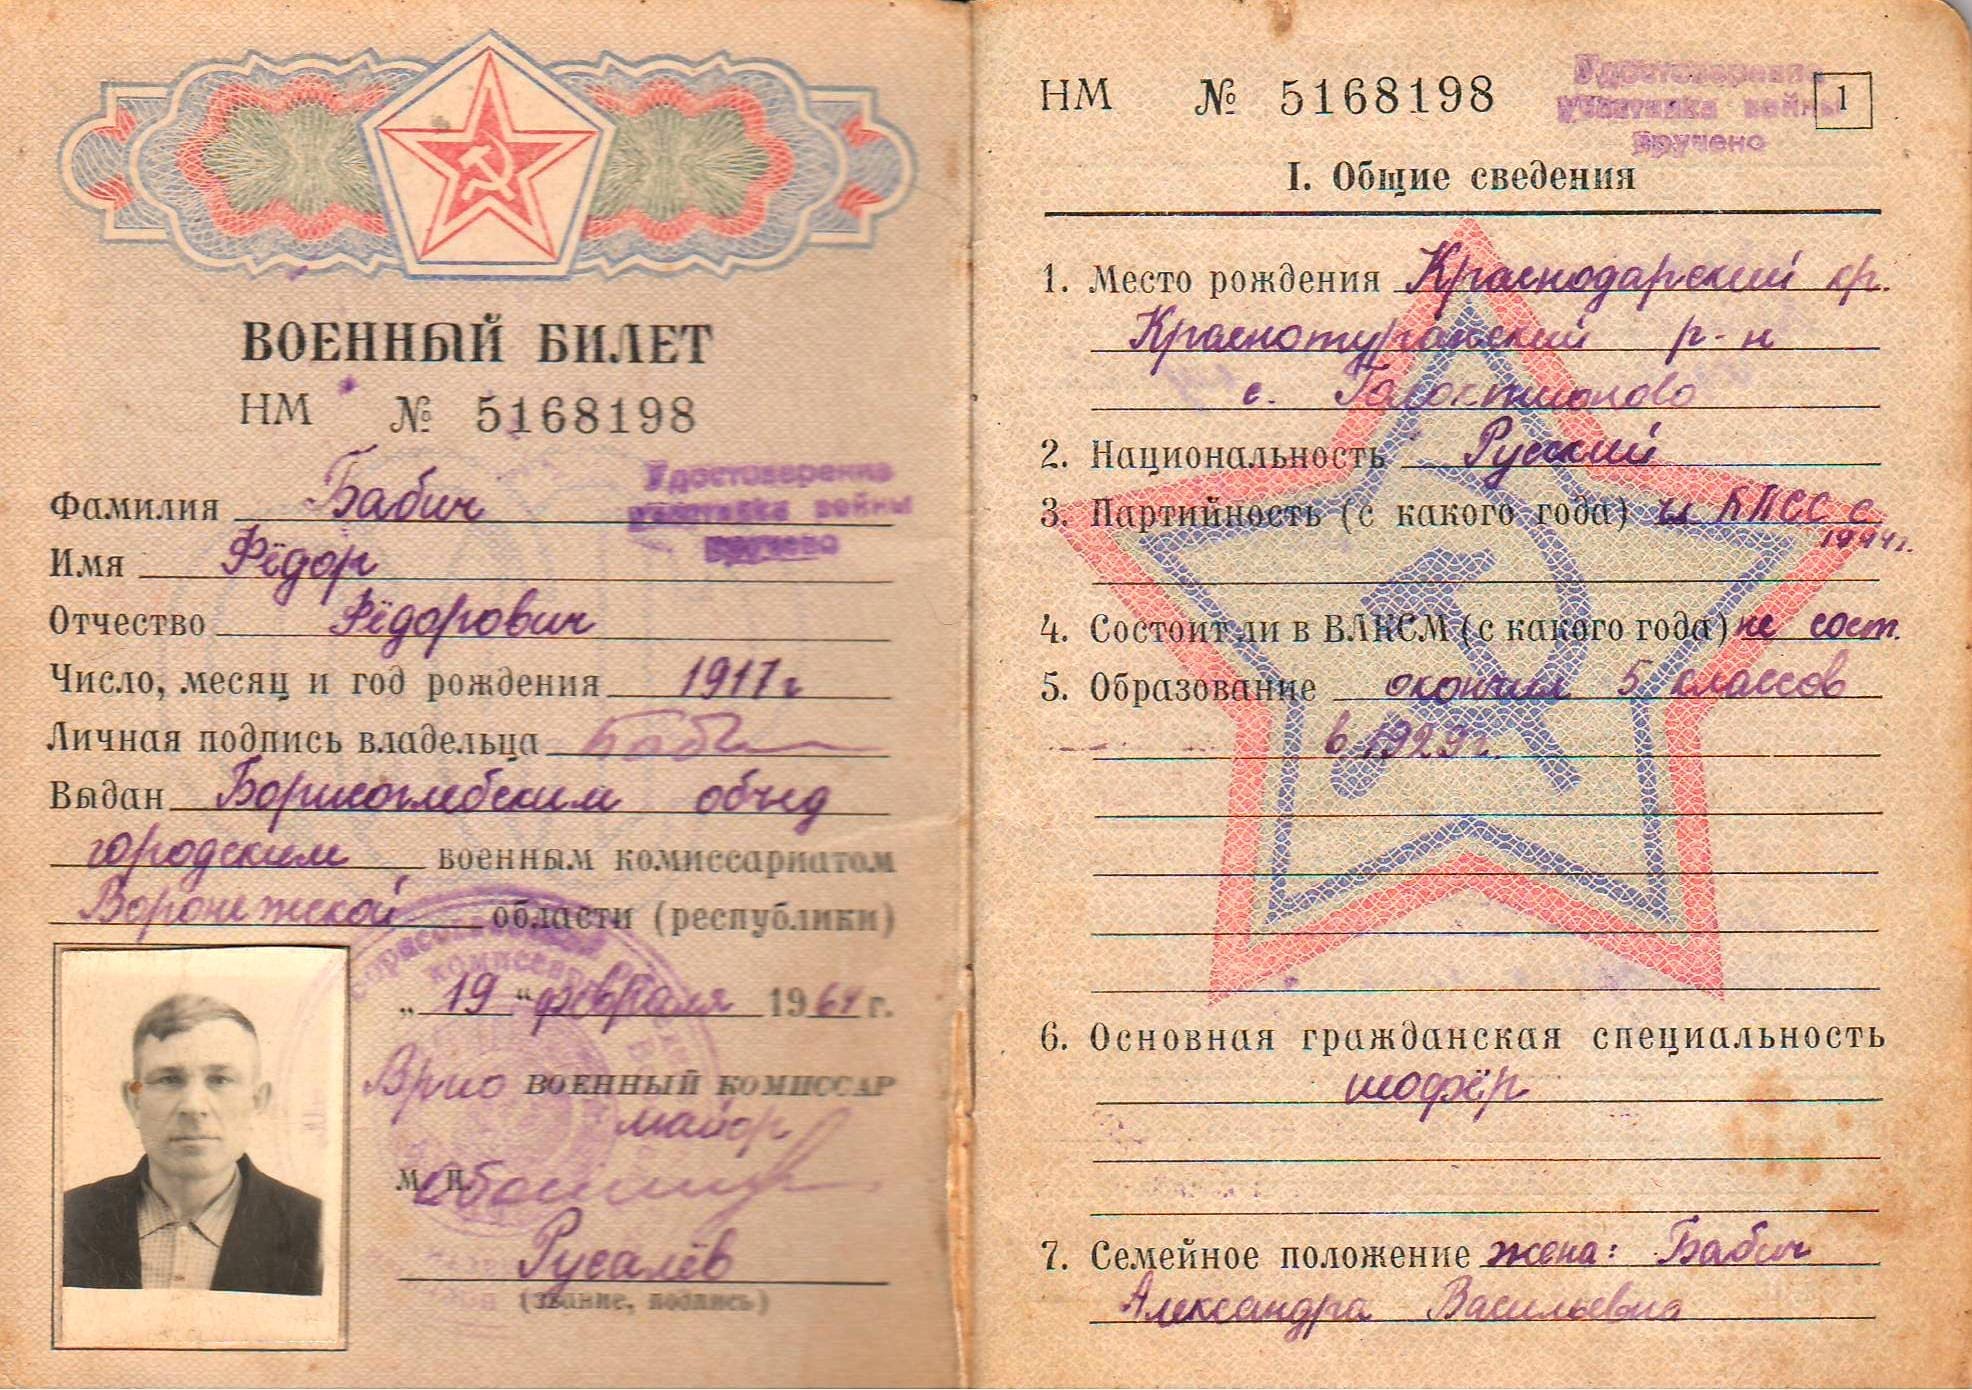 ВОЕННЫЙ БИЛЕТ
НМ № 5168198
Фамилия Бабич
Удостоверение
участника войны
вручено
Имя Фёдор
Отчество Фёдорович
Число, месяц и год рождения 1917 г
Личная подпись владельца Баб
Выдан Борисоглебским объед
городским военным комиссариатом
Воронежской области (республики)
„19“ февраля 1964 г.
Врио ВОЕННЫЙ КОМИССАР
майор
М. П.
Русалёв
(звание, подпись)
НМ № 5168198
Удостоверение
участника войны
вручено
1
I. Общие сведения
1. Место рождения Краснодарский кр.
Краснотуранский р-н
с. Галактионово
2. Национальность Русский
3. Партийность (с какого года) чл КПСС с
1944г.
4. Состоит ли в ВЛКСМ (с какого года) не сост.
5. Образование окончил 5 классов
в 1929г.
6. Основная гражданская специальность
шофёр
7. Семейное положение жена: Бабич
Александра Васильевна